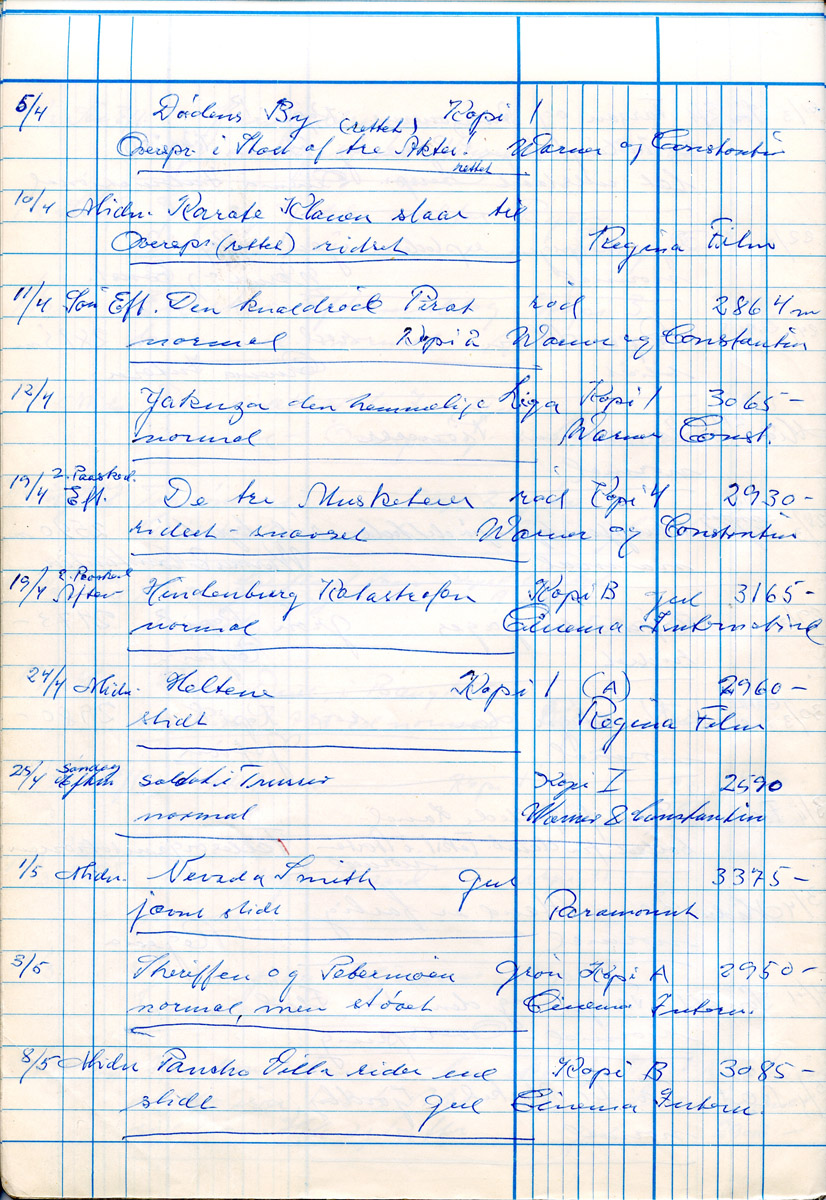 5/4 Dödens By (rettet) Kopi 1
Overspr. i Stod af tre Akter! rettet Warner og Constantin
10/4 Midn. Karate Kloen slaar til
Overspr. (rettet) ridset Regina Film
11/4 Søn Eft. Den knaldröde Pirat röd 2864 m
normal Kopi 2 Warner og Constantin
12/4 Yakuza den hemmelige Liga Kopi 1 3065-
normal Warner Const.
19/4 2. Paasked. Eft. De tre Musketerer röd Kopi 4 2930-
ridset - snavset Warner og Constantin
19/4 2. Paasked Aften Hindenburg Katastrofen Kopi B gul 3165-
normal Cinema International
24/4 Midn. Heltene Kopi 1 (A) 2960-
slidt Regina Film
25/4 Søndag Eftm soldat i Trusser Kopi I 2590
normal Warner & Constantin
1/5 Midn. Nevada Smith gul 3375-
jævnt slidt Paramount
3/5 Sheriffen og Pebermöen Grön Kopi A 2950-
normal, men stövet Cinema Intern.
8/5 Midn Pancho Villa rider end Kopi B 3085-
slidt gul Cinema Intern.